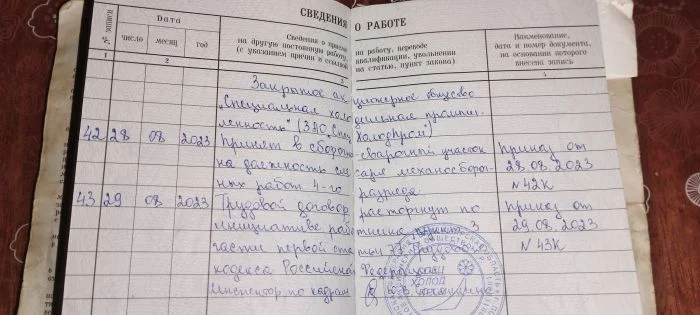 СВЕДЕНИЯ О РАБОТЕ
№ записи
Дата
число месяц год
Сведения о приеме на работу, переводе
на другую постоянную работу, квалификации, увольнении
(с указанием причин и ссылкой на статью, пункт закона)
Наименование,
дата и номер документа,
на основании которого
внесена запись
1 2 3 4
Закрытое акционерное общество
"Специальная холодильная промыш-
ленность" (ЗАО СпецХолодПром)
42 28 08 2023 Принят в сборочно-сварочный участок приказ от
на должность слесаря механосбороч- 28.08.2023
ных работ 4-го разряда N 42К
43 29 08 2023 Трудовой договор расторгнут по приказ от
инициативе работника, пункт 3 29.08.2023
части первой статьи 77 Трудового N 43К
кодекса Российской Федерации
Инспектор по кадрам
ХОЛОД